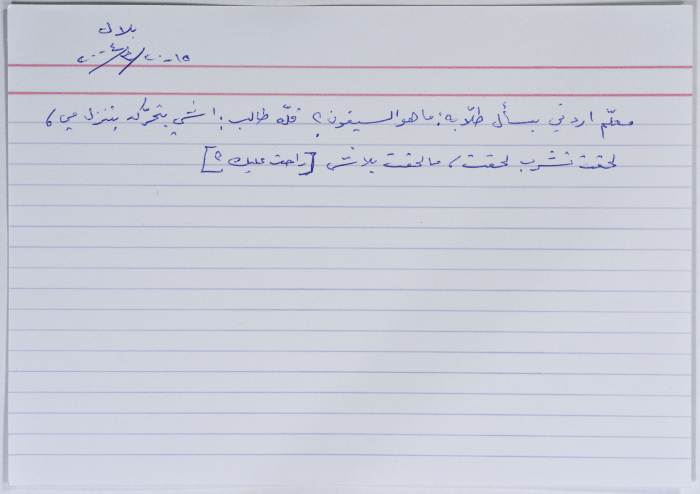 بلال
معلّم اردني بسأل طلّابه: ما هو السيفون؟ قلّه طالب: اشي بتحرّكه بتنزل مي،
لحقت تشرب لحقت، ما لحقت بلاش [راحت عليك؟]